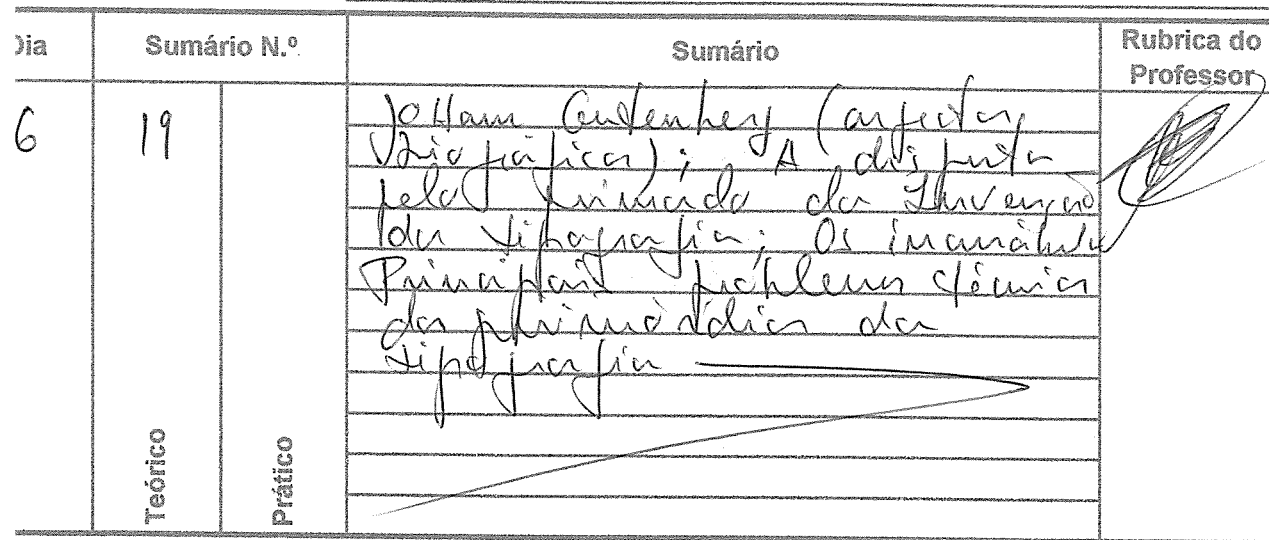 Dia Sumário N.º Sumário Rubrica do
Professor
6 19 Johann Gutenberg (aspectos
biográficos); A disputa
pelo primado da Invenção
da tipografia; Os incunábulos
Principais problemas técnicos
dos primórdios da
tipografia
Teórico Prático